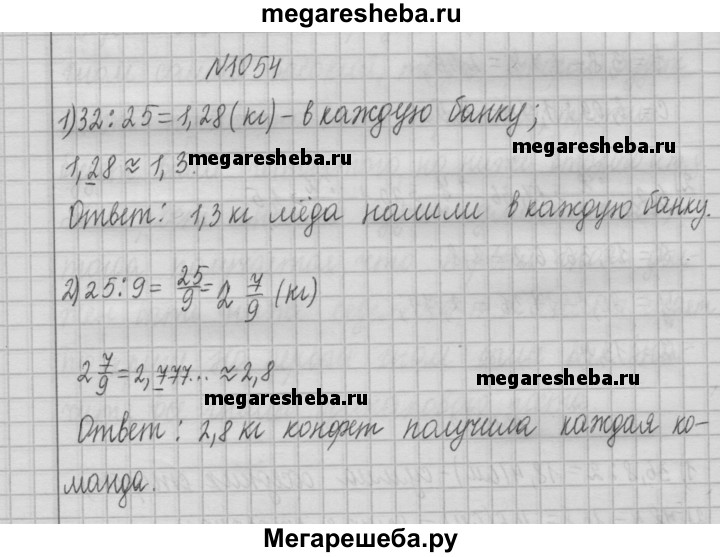 megaresheba.ru
№1054
1) 32 : 25 = 1,28 (кг) – в каждую банку;
megaresheba.ru
1,28 ≈ 1,3.
megaresheba.ru
Ответ: 1,3 кг мёда налили в каждую банку.
2) 25 : 9 = 25/9 = 2 7/9 (кг)
2 7/9 = 2,777... ≈ 2,8
megaresheba.ru
megaresheba.ru
Ответ: 2,8 кг конфет получила каждая ко-
манда.
Мегарешеба.ру